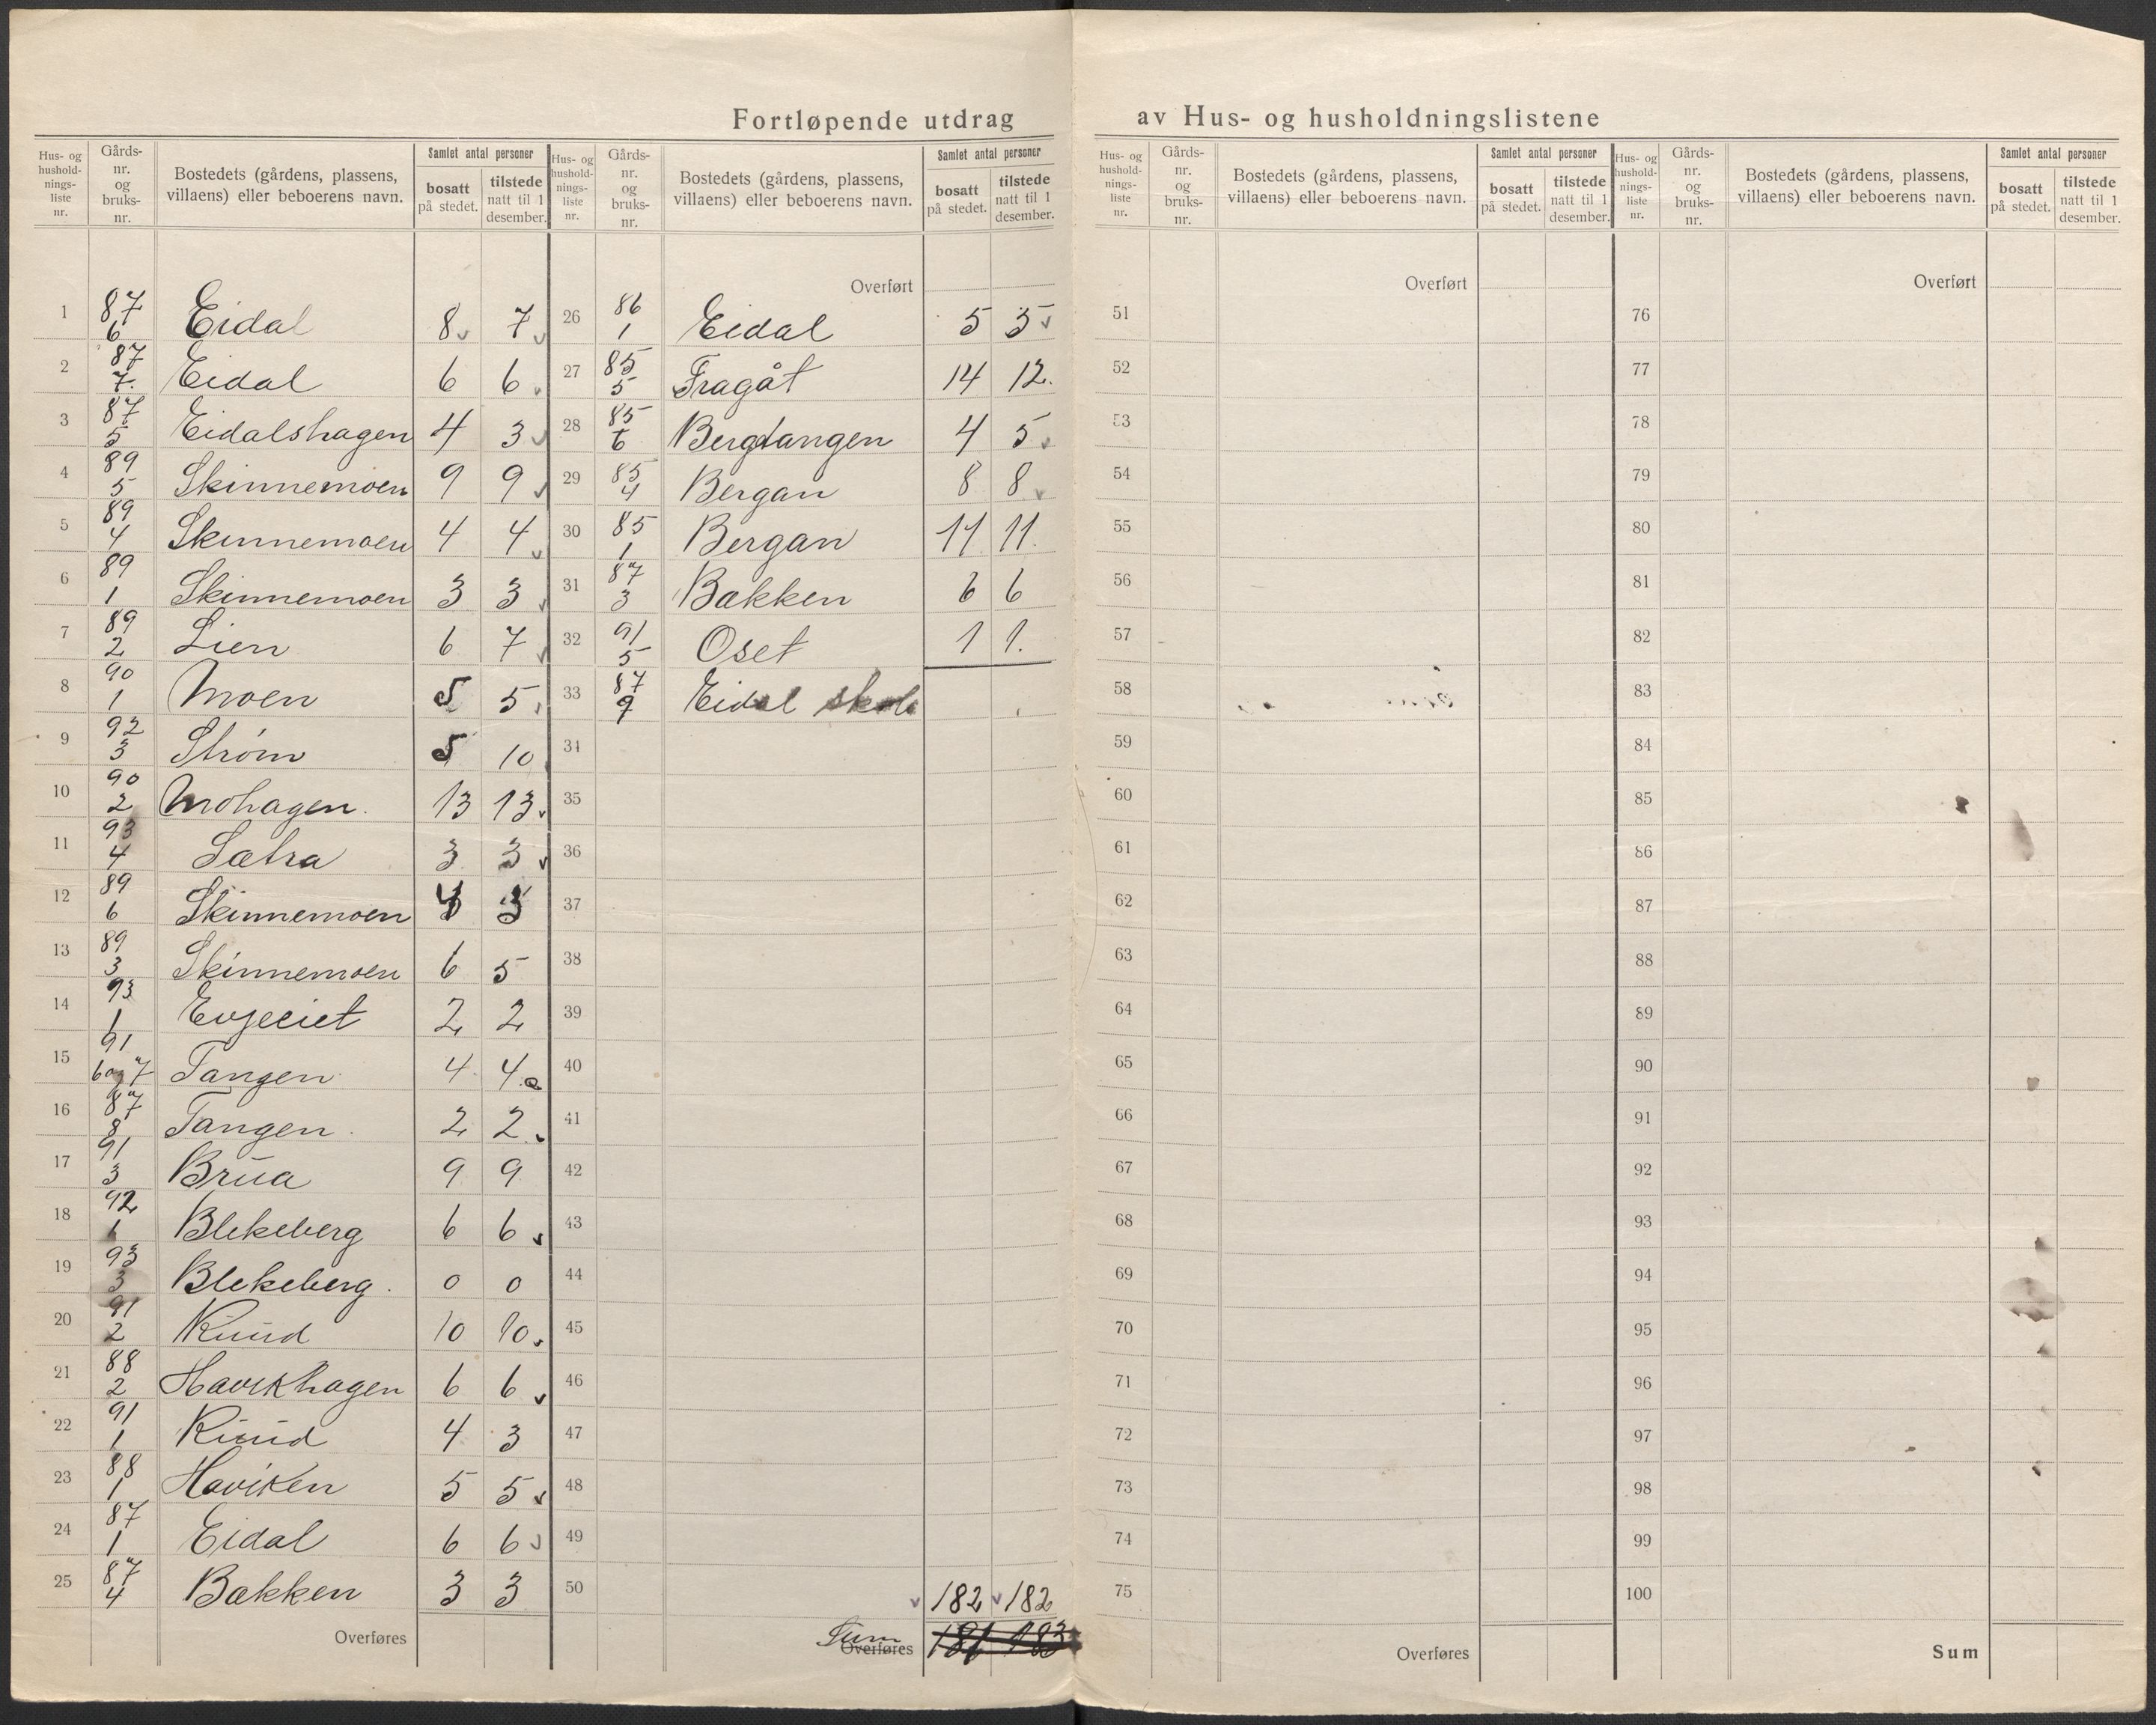 Fortløpende utdrag av Hus- og husholdningslistene
Hus- og husholdningsliste nr. Gårds-nr. og bruks-nr. Bostedets (gårdens, plassens, villaens) eller beboerens navn. Samlet antal personer bosatt på stedet. tilstede natt til 1 desember.
1 87/6 Eidal 8 7
2 87/7 Eidal 6 6
3 87/5 Eidalshagen 4 3
4 89/5 Skinnemoen 9 9
5 89/4 Skinnemoen 4 4
6 89/1 Skinnemoen 3 3
7 89/2 Lien 6 7
8 90/1 Moen 5 5
9 92/3 Strøm 5 10
10 90/2 Mohagen. 13 13
11 93/4 Sætra 3 3
12 89/6 Skinnemoen 3
13 89/3 Skinnemoen 6 5
14 93/1 2 2
15 91/6 og 7 Tangen 4 4
16 87/8 Tangen. 2 2
17 91/3 Brua 9 9
18 92/1 Blekeberg 6 6
19 93/3 Blekeberg. 0 0
20 91/2 Ruud 10 10
21 88/2 Havikhagen 6 6
22 91/1 Ruud 4 3
23 88/1 Haviken 5 5
24 87/1 Eidal 6 6
25 87/4 Bakken 3 3
Overføres
Hus- og husholdningsliste nr. Gårds-nr. og bruks-nr. Bostedets (gårdens, plassens, villaens) eller beboerens navn. Samlet antal personer bosatt på stedet. tilstede natt til 1 desember.
Overført
26 86/1 Eidal 5 3
27 85/5 Fragåt 14 12.
28 85/6 Bergtangen 4 5
29 85/4 Bergan 8 8
30 85/1 Bergan 11 11.
31 87/3 Bakken 6 6
32 91/5 Oset 1 1.
33 87/9 Eidal skole
34
35
36
37
38
39
40
41
42
43
44
45
46
47
48
49
50 182 182
Sum Overføres 183
Hus- og husholdningsliste nr. Gårds-nr. og bruks-nr. Bostedets (gårdens, plassens, villaens) eller beboerens navn. Samlet antal personer bosatt på stedet. tilstede natt til 1 desember.
Overført
51
52
53
54
55
56
57
58
59
60
61
62
63
64
65
66
67
68
69
70
71
72
73
74
75
Overføres
Hus- og husholdningsliste nr. Gårds-nr. og bruks-nr. Bostedets (gårdens, plassens, villaens) eller beboerens navn. Samlet antal personer bosatt på stedet. tilstede natt til 1 desember.
Overført
76
77
78
79
80
81
82
83
84
85
86
87
88
89
90
91
92
93
94
95
96
97
98
99
100
Sum